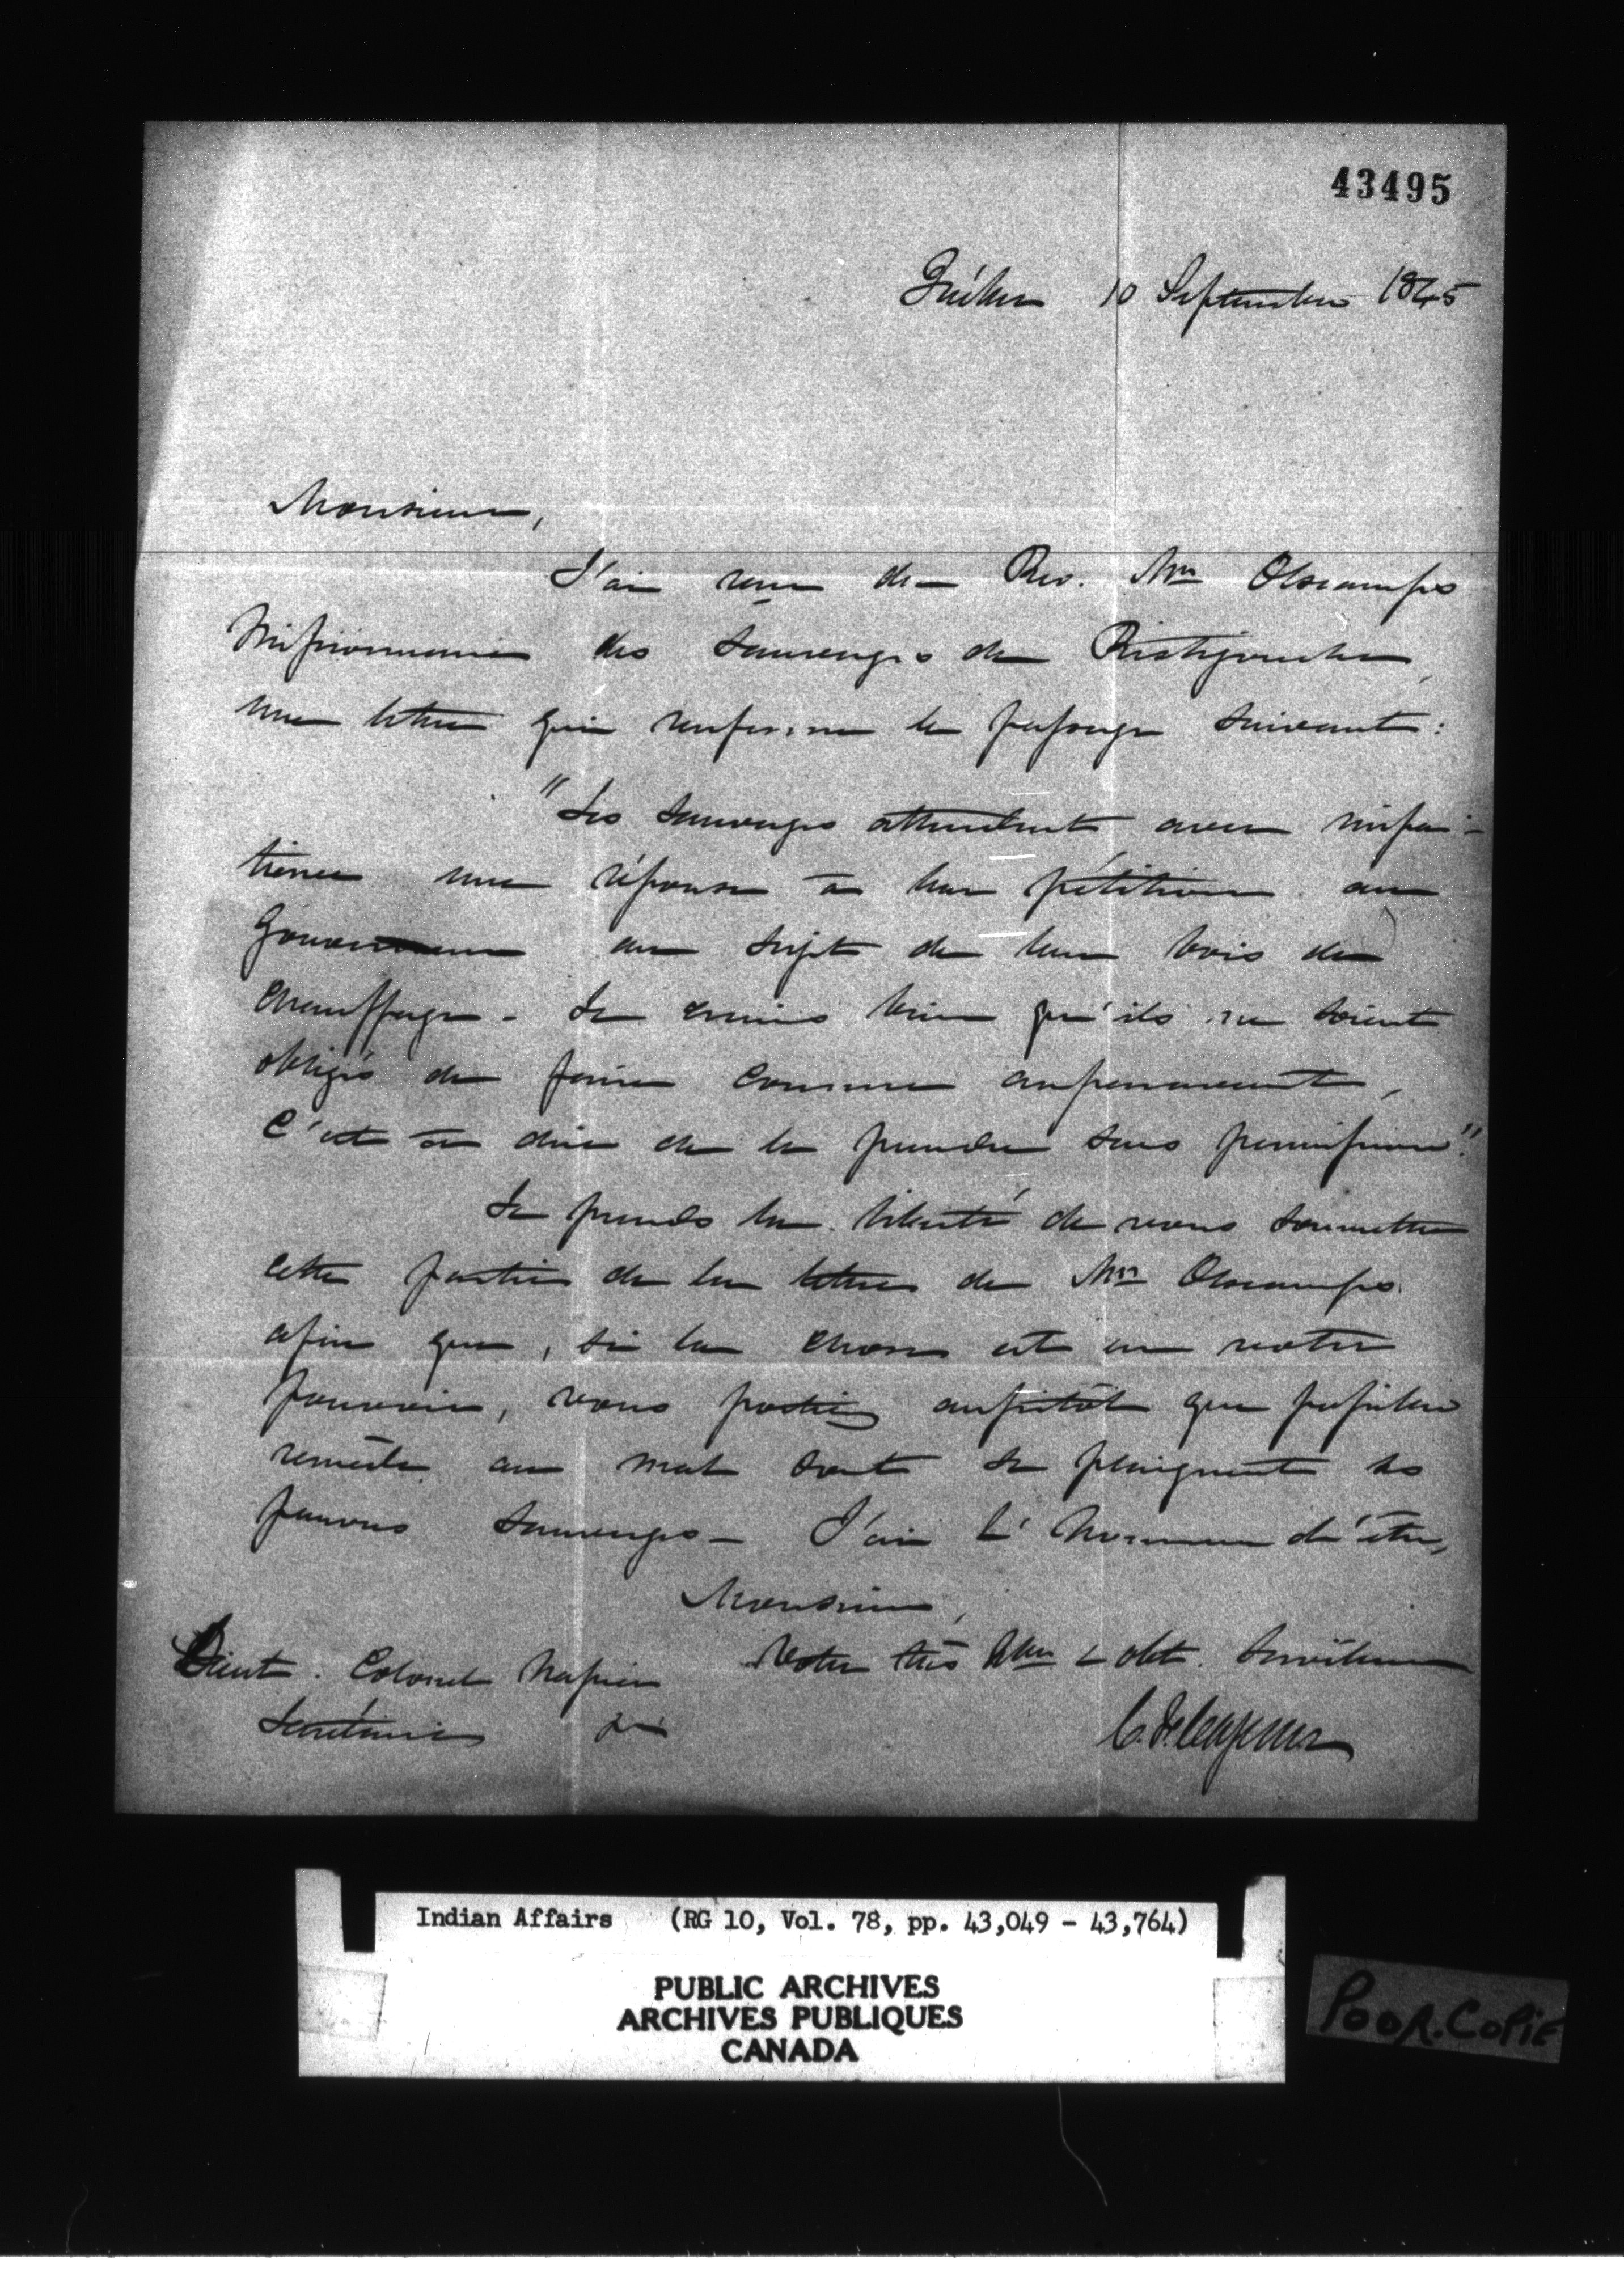 43495
Québec 10 Septembre 1845
Monsieur,
J'ai reçu de Rev. Mr Olscamps
Missionnaire des Sauvages de Ristigouche,
une lettre qui renferme le passage suivant :
"Les Sauvages attendent avec impa-
tience une réponse à leur pétition au
Gouverneur au sujet de leur bois de
chauffage - Je crains bien qu'ils ne soient
obligés de faire comme auparavant,
C'est à dire de le prendre sans permission".
Je prends la liberté de vous soumettre
cette partie de la lettre de Mr Olscamps
afin que, si la chose est en votre
pouvoir, vous portiez aussitôt que possible
remède au mal dont se plaignent les
pauvres Sauvages - J'ai l'honneur d'être,
Monsieur,
Votre très hble & obt. Serviteur
Lieut. Colonel Napier
Secrétaire &c
C. F. Cazeau
Indian Affairs (RG 10, Vol. 78, pp. 43,049 - 43,764)
PUBLIC ARCHIVES
ARCHIVES PUBLIQUES
CANADA
POOR.COPIE